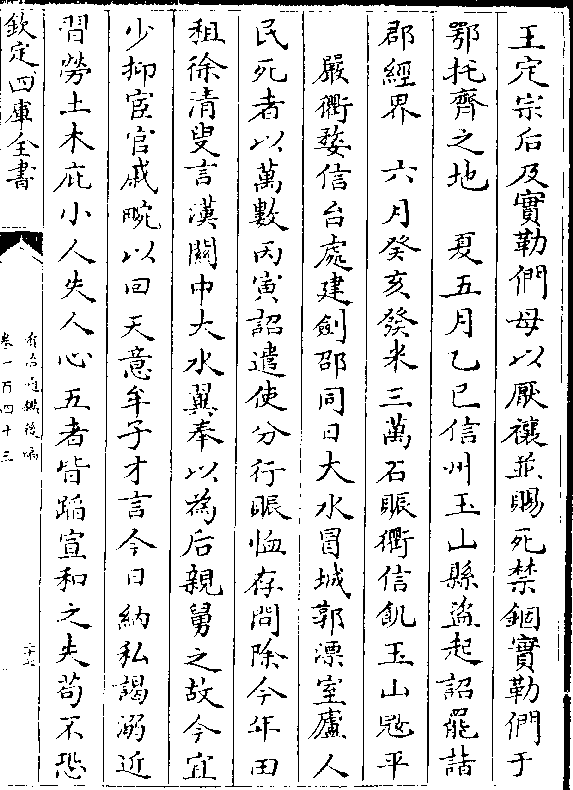 王定宗后及實勒們母以厭禳並賜死禁錮實勒們于
鄂托齊之地　夏五月乙巳信州玉山縣盜起詔罷諸
郡經界　六月癸亥發米三萬石賑衢信飢玉山冦平
嚴衢婺信台處建劍邵同日大水冒城郭漂室廬人
民死者以萬數丙寅詔遣使分行賑恤存問除今年田
租徐清叟言漢關中大水翼奉以為后親舅之故今宜
少抑宦官戚畹以回天意牟子才言今日納私謁溺近
習勞土木庇小人失人心五者皆蹈宣和之失苟不恐
欽定四庫全書
資治通鑑後編
卷一百四十三